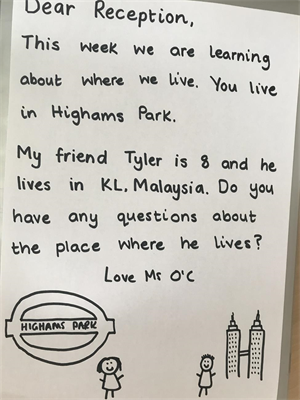 Dear Reception,
This week we are learning
about where we live. You live
in Highams Park.
My friend Tyler is 8 and he
lives in KL, Malaysia. Do you
have any questions about
the place where he lives?
Love Mr O'C
HIGHAMS PARK